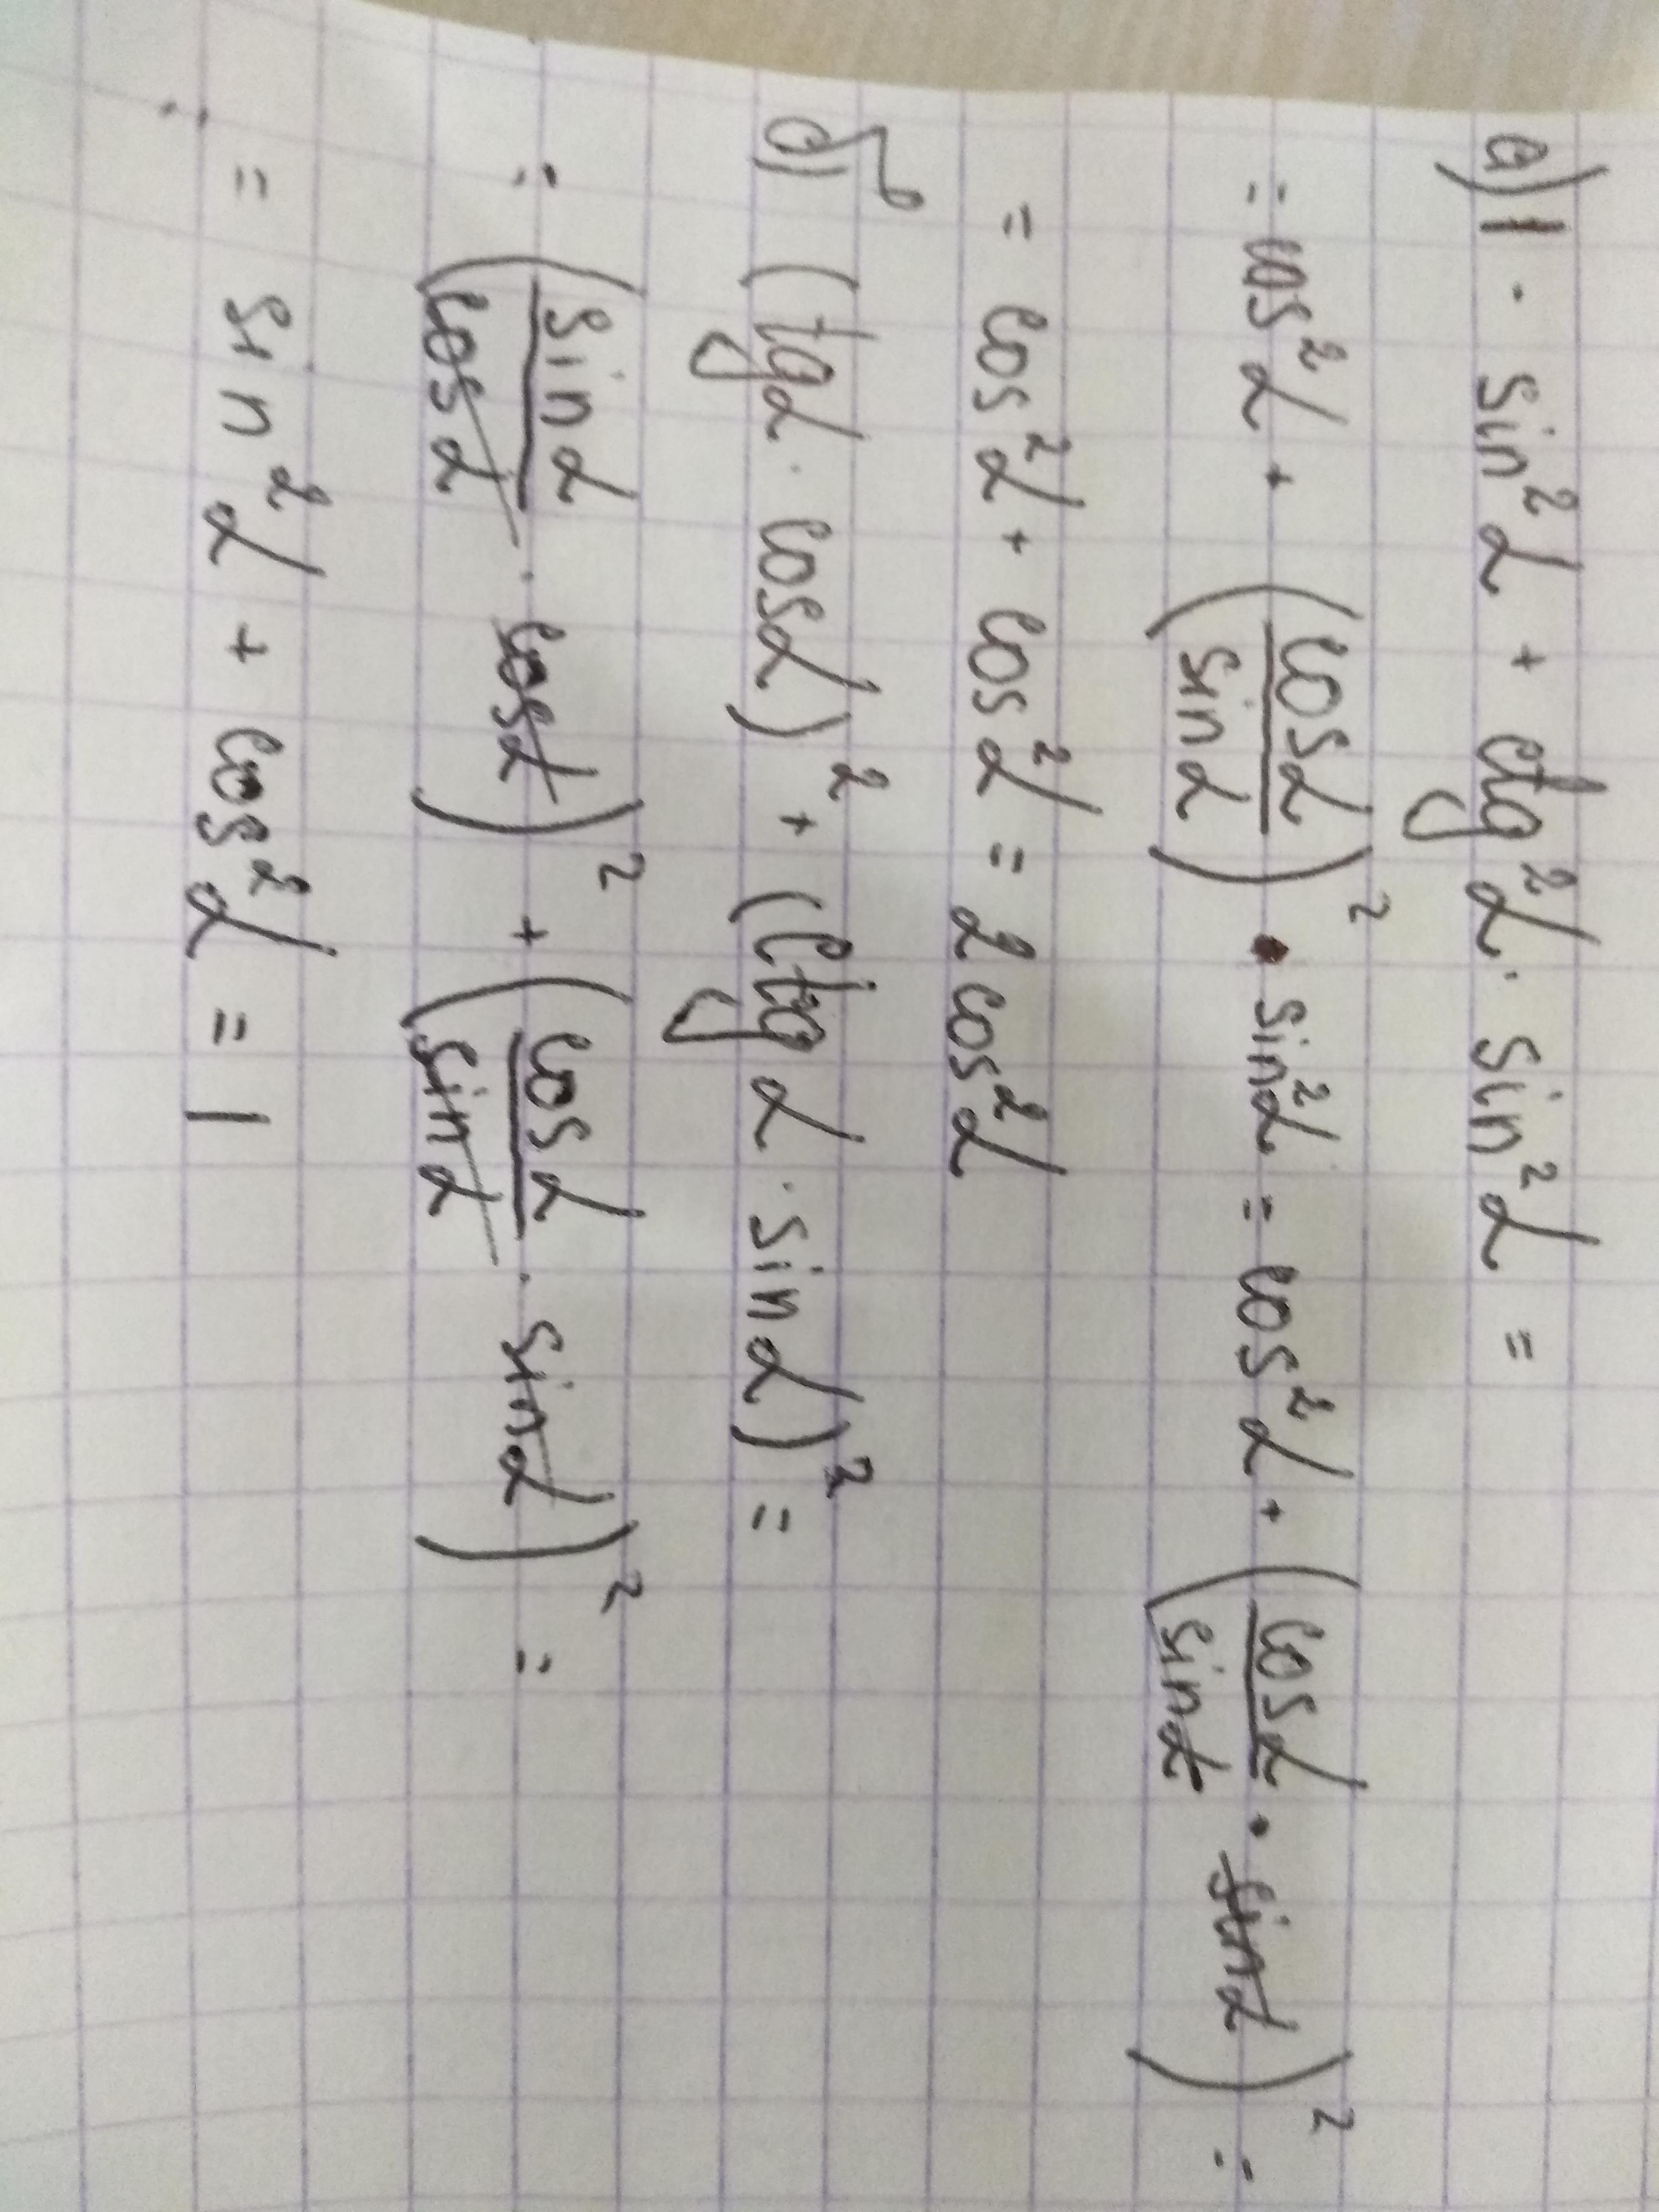 а) 1 · sin²α + ctg²α · sin²α =
= cos²α + (cosα/sinα)² · sin²α = cos²α + (cosα/sinα · sinα)² =
= cos²α + cos²α = 2cos²α
б) (tgα · cosα)² + (ctgα · sinα)² =
= (sinα/cosα · cosα)² + (cosα/sinα · sinα)² =
= sin²α + cos²α = 1